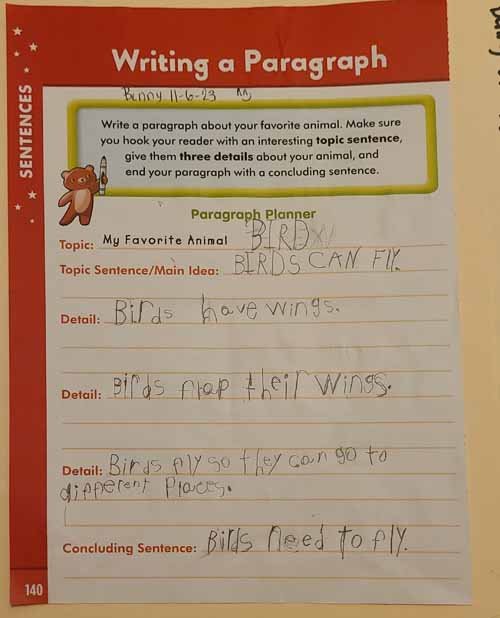 Writing a Paragraph
SENTENCES
Benny 11-6-23
Write a paragraph about your favorite animal. Make sure
you hook your reader with an interesting topic sentence,
give them three details about your animal, and
end your paragraph with a concluding sentence.
Paragraph Planner
Topic: My Favorite Animal BIRD
Topic Sentence/Main Idea: BIRDS CAN FLY.
Detail: Birds have wings.
Detail: Birds flap their wings.
Detail: Birds fly so they can go to
different Places.
Concluding Sentence: Birds need to fly.
140